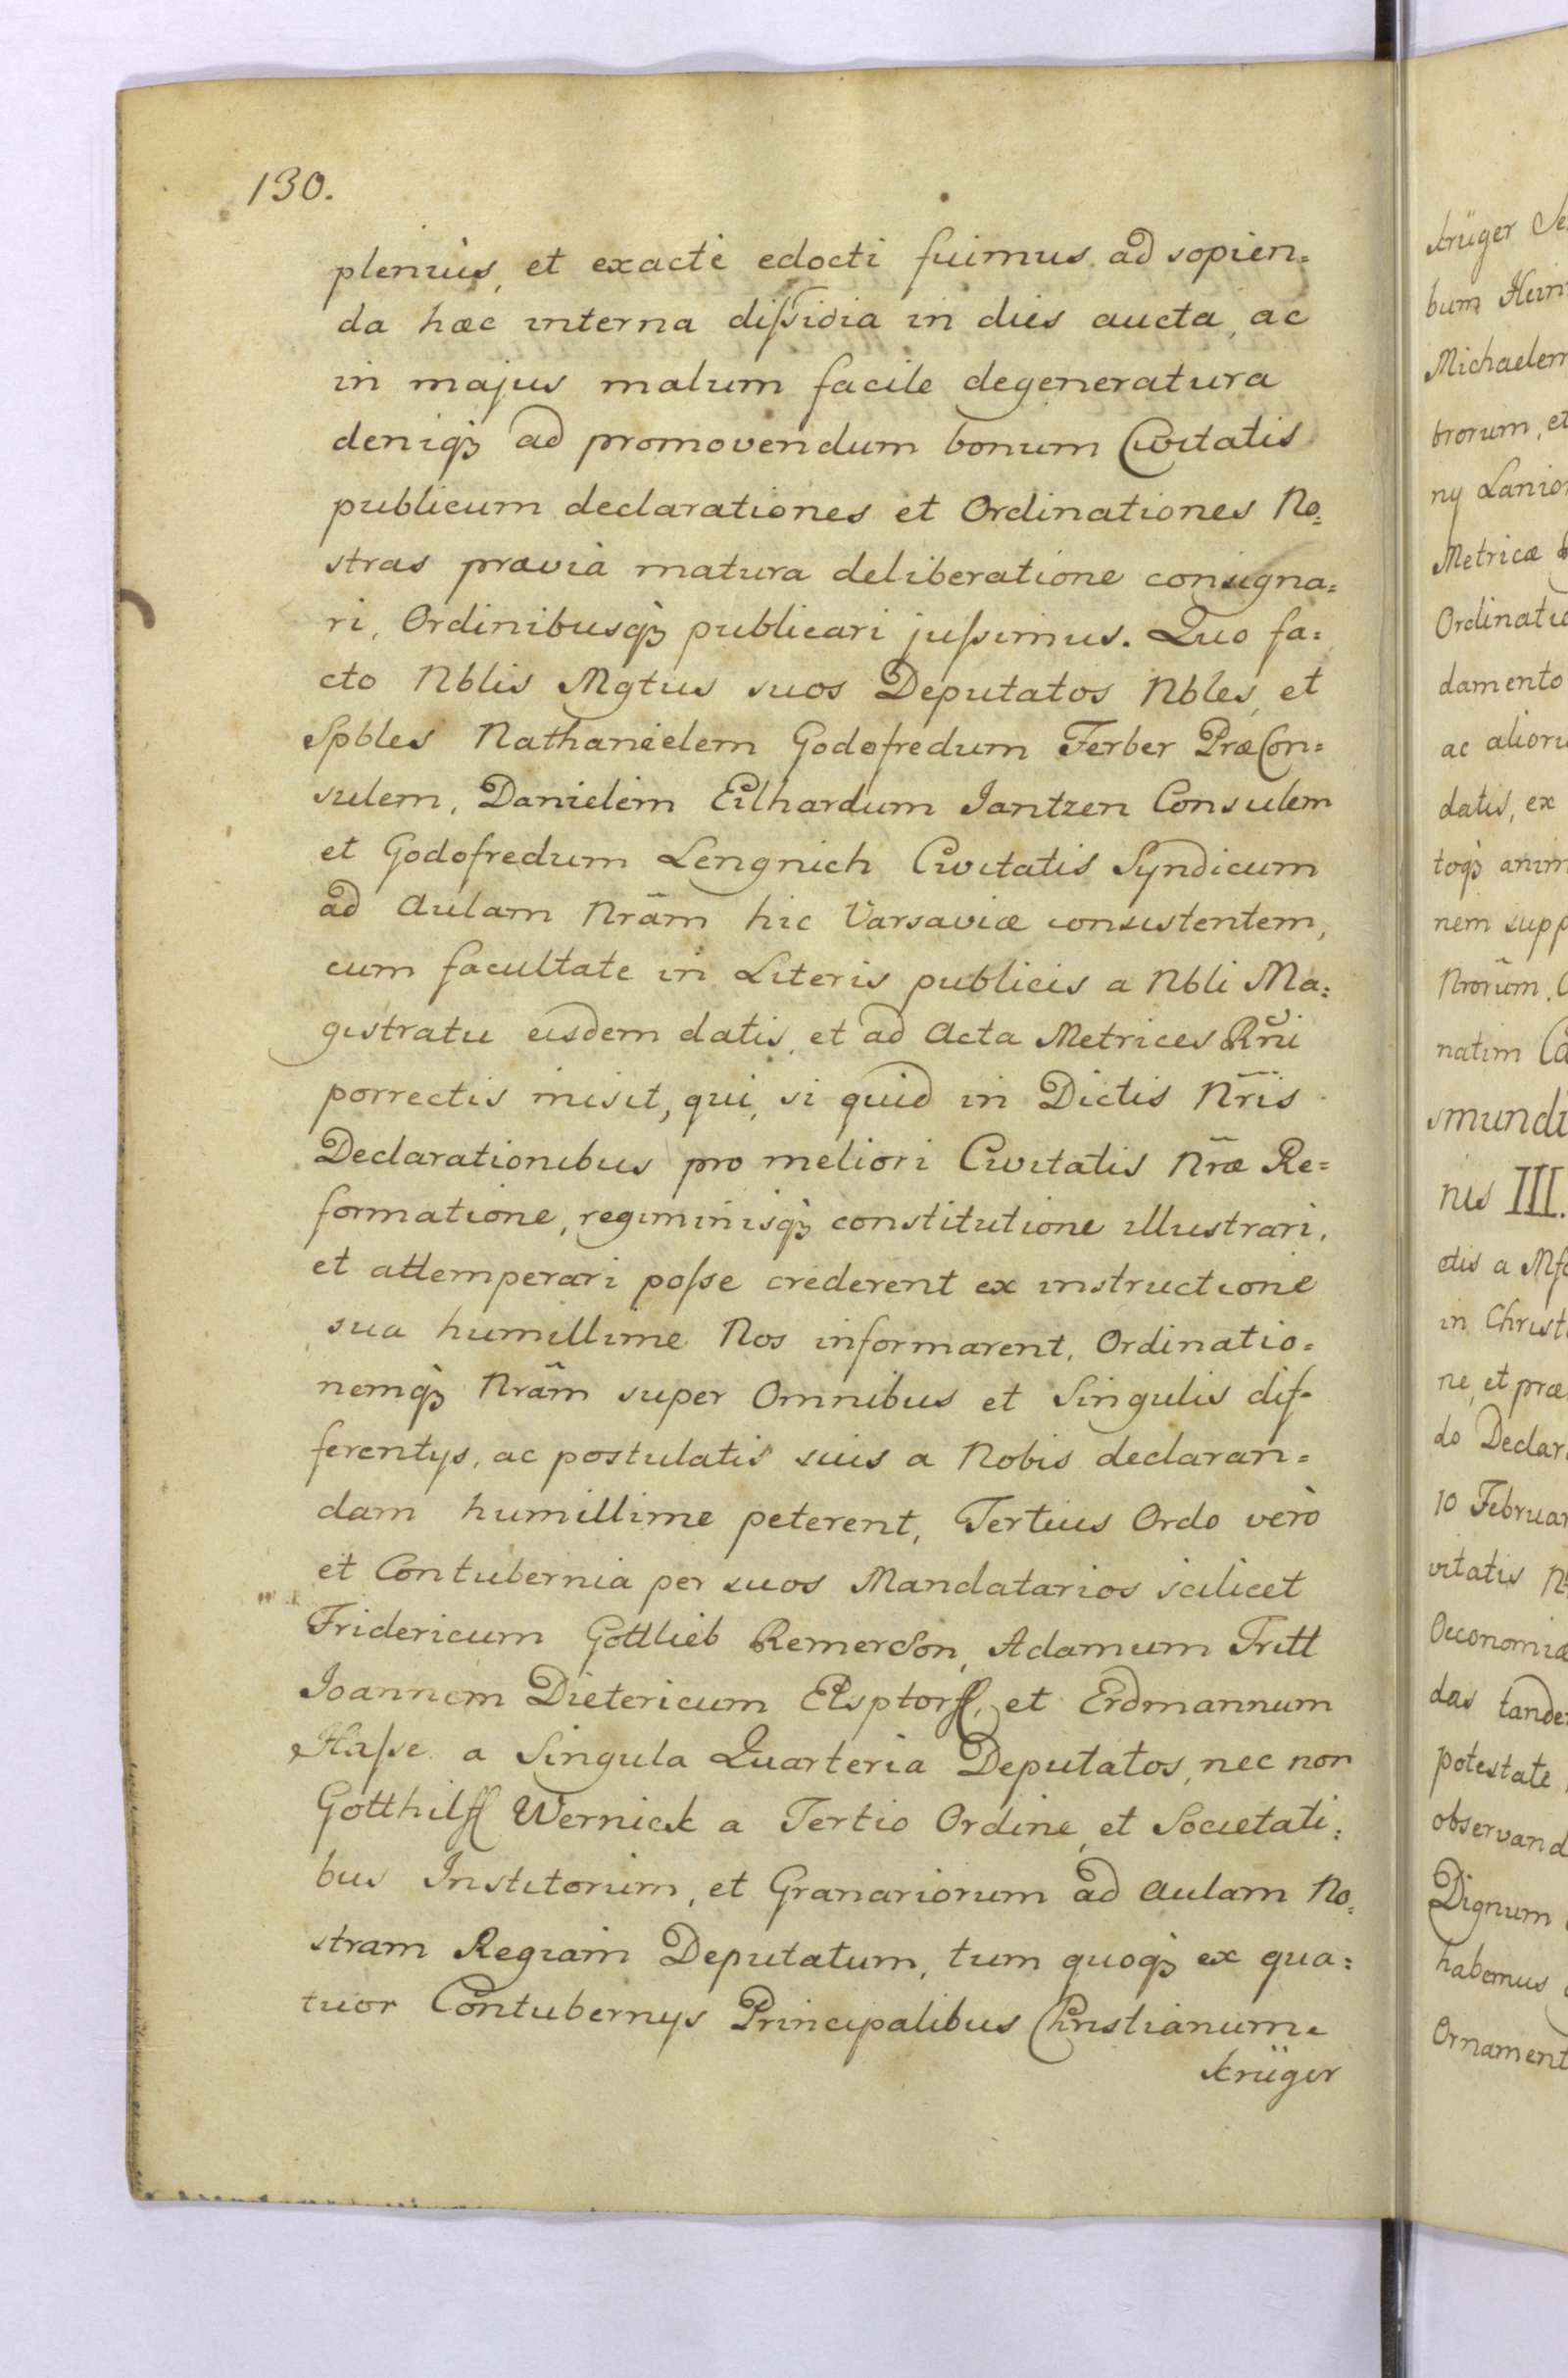 130.
pleniùs, et exactè edocti fuimus ad sopien=
da hæc interna dissidia in dies aucta, ac
in majus malum facile degeneratura
deniq́ȝ ad promovendum bonum Civitatis
publicum declarationes et Ordinationes No=
stras prævia matura deliberatione consigna=
ri, Ordinibusq́ȝ publicari jussimus. Quo fa=
cto Nblis Mgtus suos Deputatos Nbles, et
Spbles Nathanielem Godofredum Ferber PræCon=
sulem, Danielem Eilhardum Jantzen Consulem
et Godofredum Lengnich Civitatis Syndicum
ad Aulam Nram̃ hic Varsaviæ consistentem,
cum facultate in Literis publicis a Nbli Ma=
gistratu eisdem datis, et ad Acta Metrices Rñi
porrectis misit, qui, si quid in Dictis Nr̃is
Declarationibus pro meliori Civitatis Nr̃æ Re=
formatione, regiminisq́ȝ constitutione illustrari,
et attemperari posse crederent ex instructione
sua humillime Nos informarent, Ordinatio=
nemq́ȝ Nram̃ super Omnibus et Singulis dif=
ferentijs, ac postulatis suis a Nobis declaran=
dam humillime peterent, Tertius Ordo verò
et Contubernia per suos Mandatarios scilicet
Fridericum Gottlieb RemerSon, Adamum Tritt
Joannem Dietericum Elsptorff, et Erdmannum
Hasse a Singula Quarteria Deputatos, nec non
Gotthilff Wernick a Tertio Ordine, et Societati=
bus Institorum, et Granariorum ad Aulam No=
stram Regiam Deputatum, tum quoq́ȝ ex qua=
tuor Contubernijs Principalibus Christianum
Krüger
Krüger Se
bum Hein
Michaelem
brorum, et
ny Lanio
Metricæ
Ordinatio
damento
ac alioru
datis, ex
toq́ȝ anim
nem supp
Nrorum̃.
natim Ca
smundi
nis III.
ctis a
in Christ
ne, et præ
do Declar
10 Februar
vitatis
Oeconomiæ
das tande
potestate
observand
Dignum
habemus
Ornament